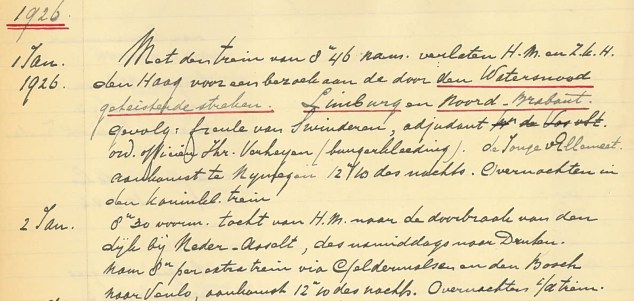 1926.
1 Jan. Met den trein van 8u 46 nam. verlaten H.M. en Z.K.H.
1926. den Haag voor een bezoek aan de door den Watersnood
geteisterde streken. Limburg en Noord-Brabant.
gevolg: freule van Swinderen, adjudant
ord. officier Jhr. Verheyen (burgerkleeding). de Jonge v. Ellemeet.
aankomst te Nijmegen 12u10 des nachts. Overnachten in
den koninkl. trein
2 Jan. 8u30 voorm. tocht van H.M. naar de doorbraak van den
dijk bij Neder-Asselt, des namiddags naar Druten.
Nam 8u per extra trein via Geldermalsen en den Bosch
naar Venlo, aankomst 12u10 des nachts. Overnachten i/d trein.